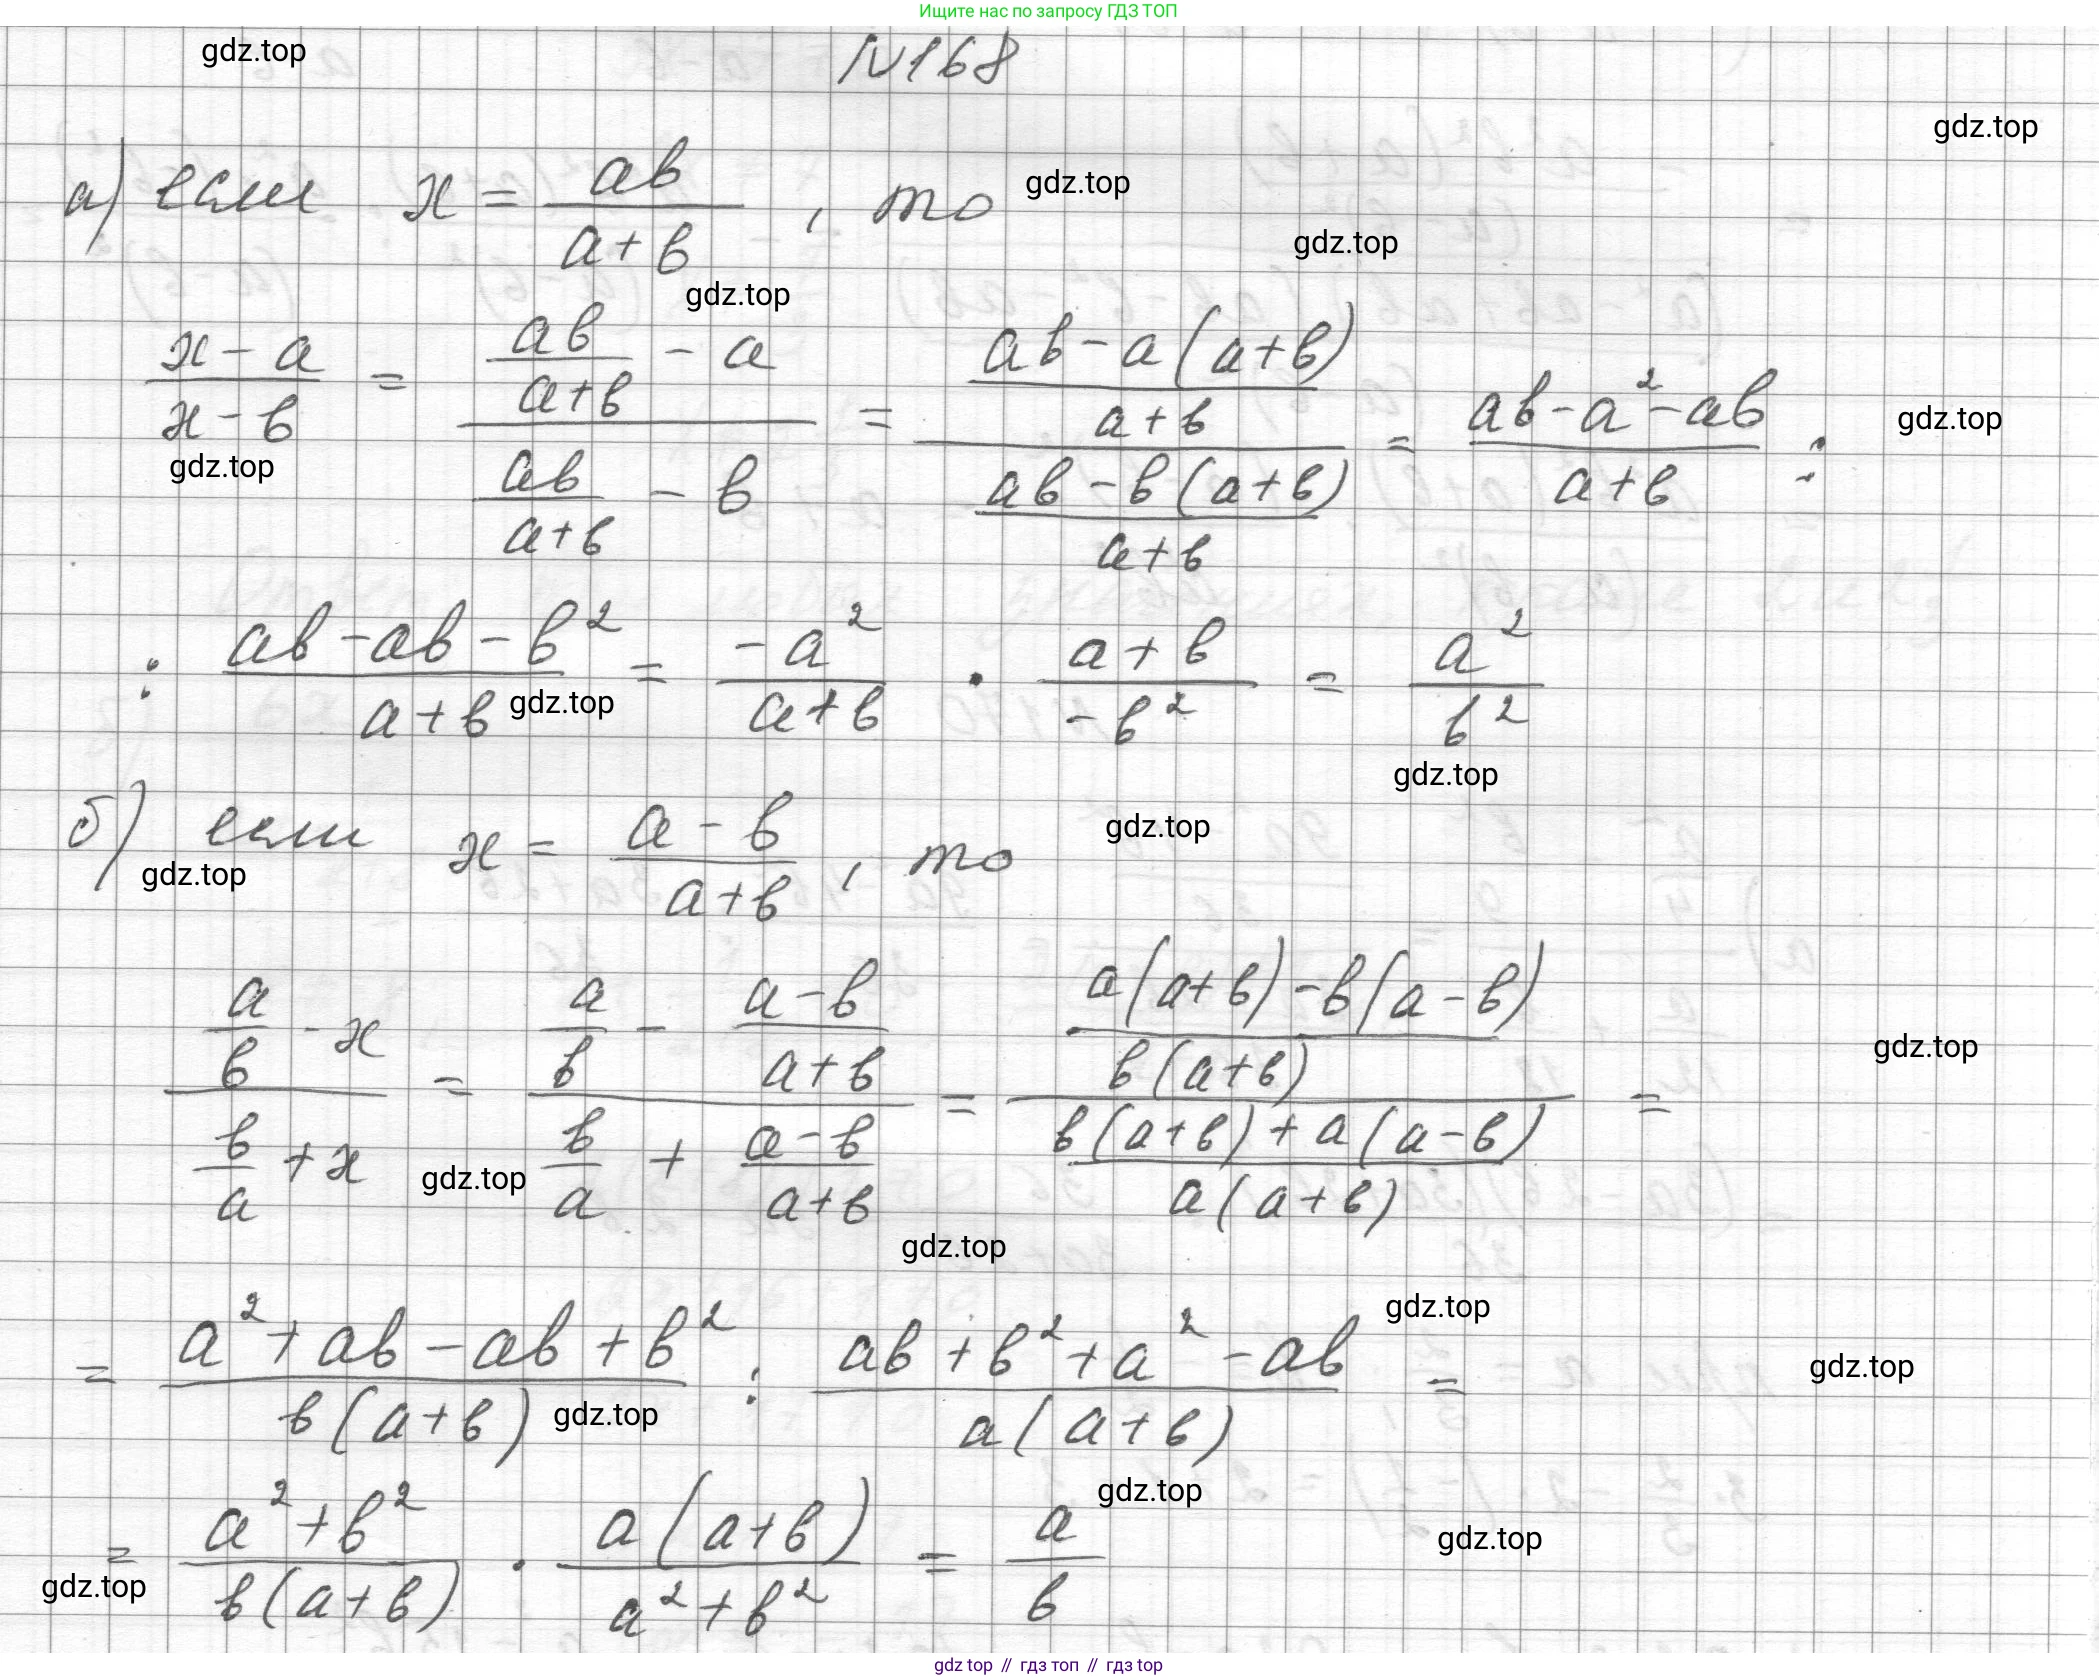 Ищите нас по запросу ГДЗ ТОП
gdz.top
N168
gdz.top
а) если x = ab/(a+b), то
gdz.top
gdz.top
gdz.top
(x-a)/(x-b) = (ab/(a+b) - a)/(ab/(a+b) - b) = ((ab-a(a+b))/(a+b))/((ab-b(a+b))/(a+b)) = (ab-a²-ab)/(a+b) :
gdz.top
gdz.top
: (ab-ab-b²)/(a+b) = -a²/(a+b) · (a+b)/(-b²) = a²/b²
gdz.top
gdz.top
б) если x = (a-b)/(a+b), то
gdz.top
gdz.top
(a/b - x)/(b/a + x) = (a/b - (a-b)/(a+b))/(b/a + (a-b)/(a+b)) = ((a(a+b)-b(a-b))/(b(a+b)))/((b(a+b)+a(a-b))/(a(a+b))) =
gdz.top
gdz.top
gdz.top
gdz.top
= (a²+ab-ab+b²)/(b(a+b)) : (ab+b²+a²-ab)/(a(a+b)) =
gdz.top
gdz.top
gdz.top
= (a²+b²)/(b(a+b)) · (a(a+b))/(a²+b²) = a/b
gdz.top
gdz.top
gdz top // гдз топ // гдз top